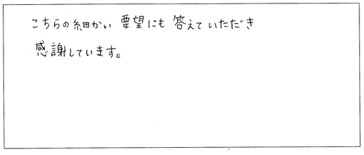 こちらの細かい要望にも答えていただき
感謝しています。